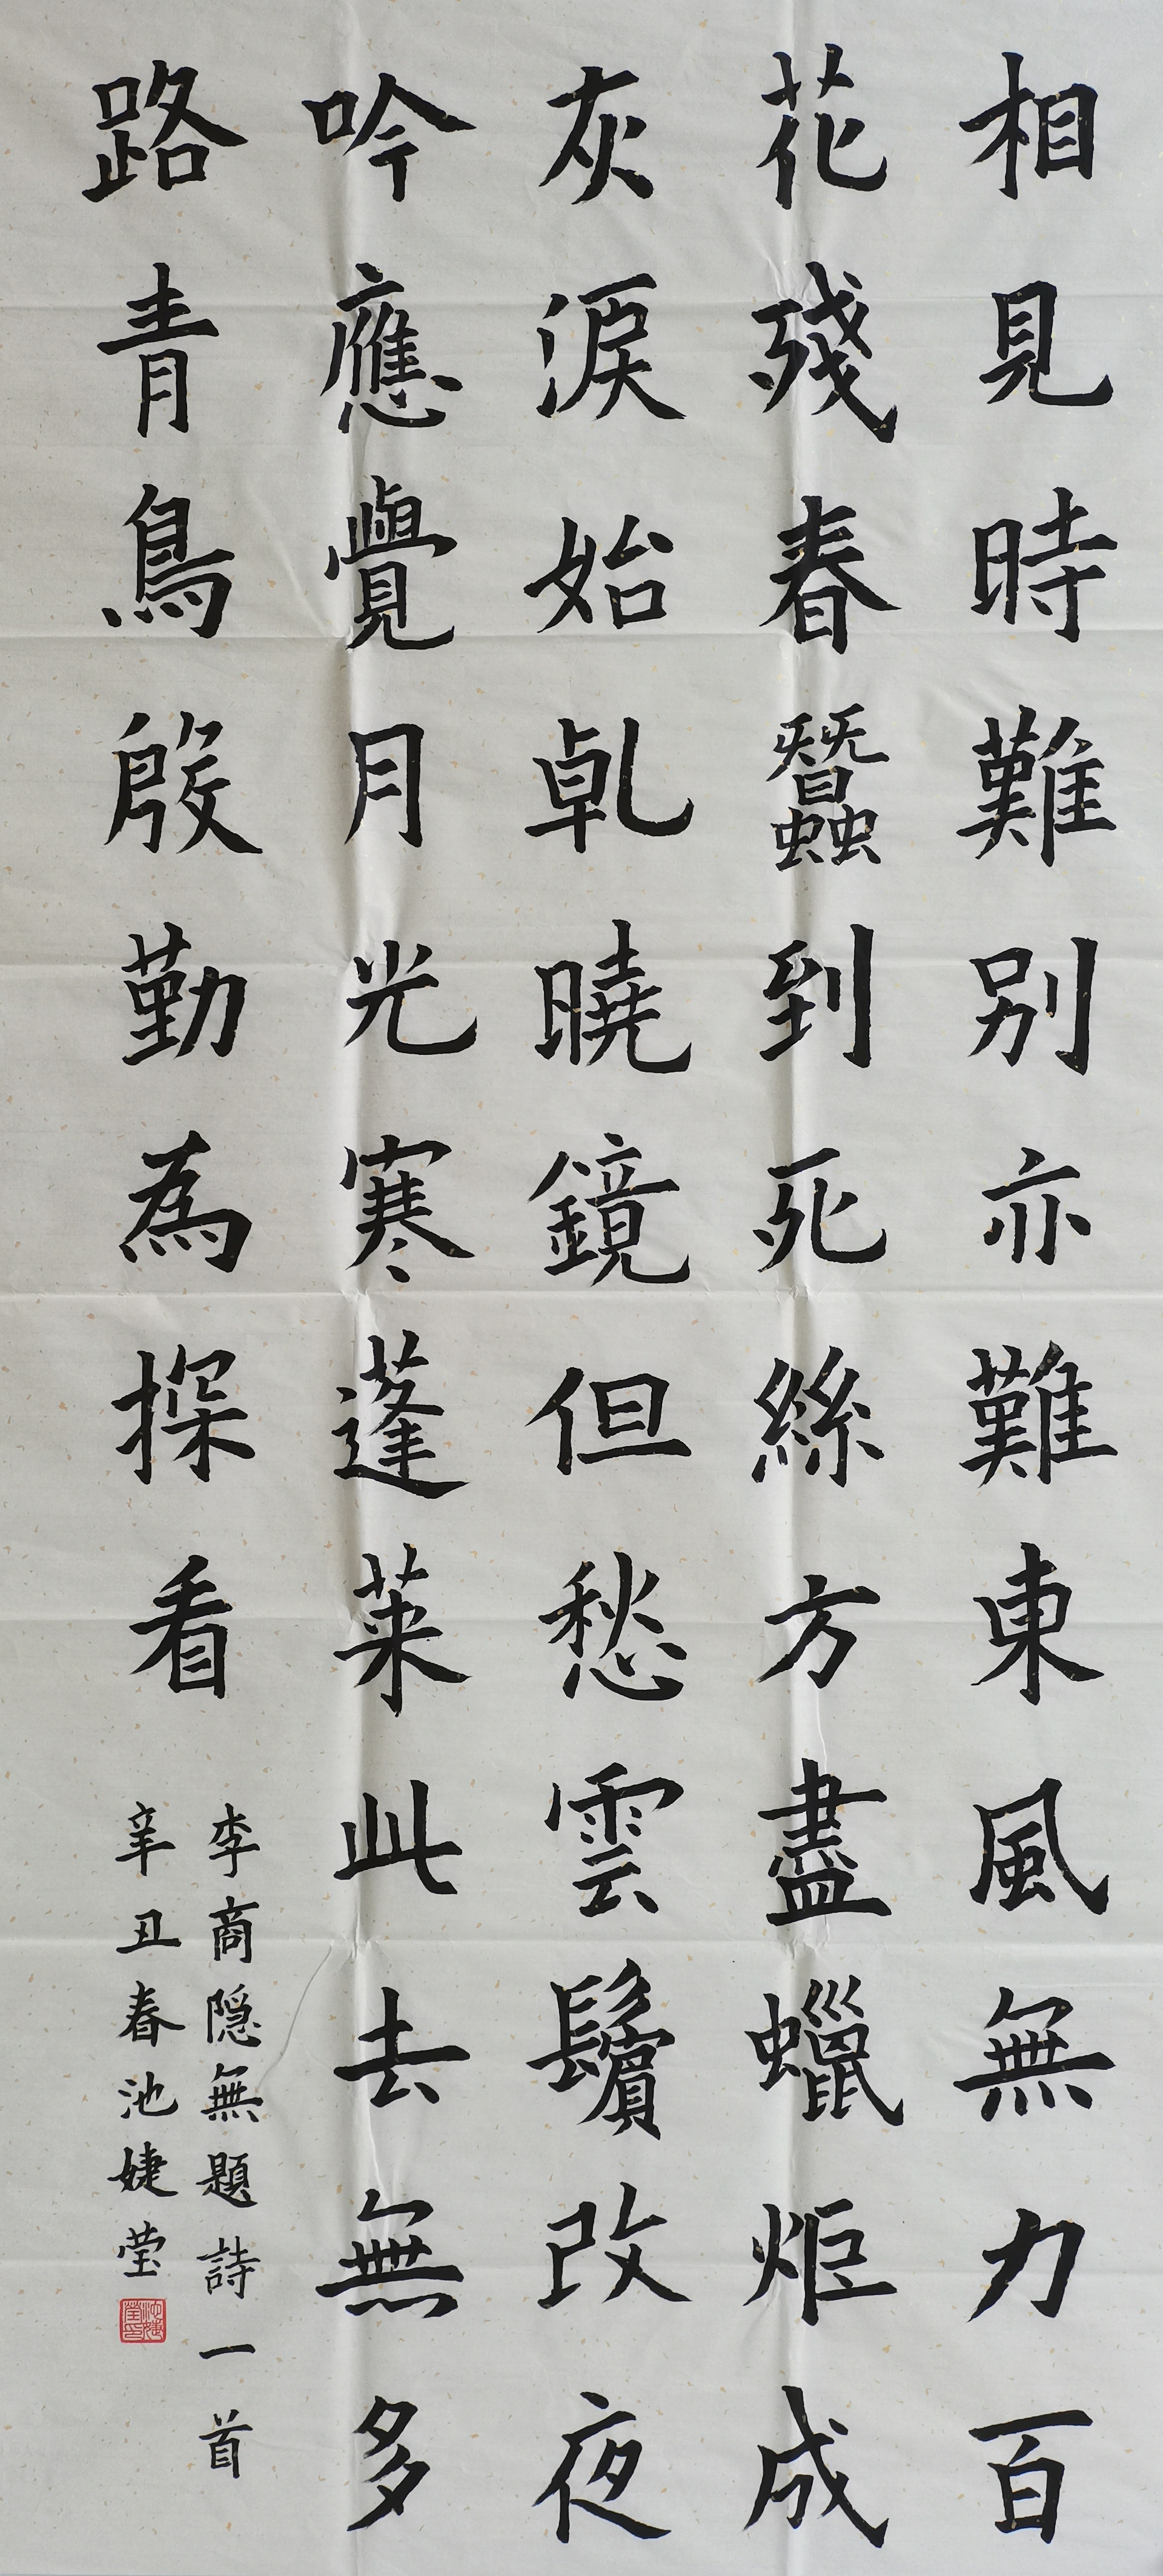 相見時難别亦難東風無力百
花殘春蠶到死絲方盡蠟炬成
灰淚始乹曉鏡但愁雲鬢改夜
吟應覺月光寒蓬萊此去無多
路青鳥殷勤為探看
李商隐無題詩一首
辛丑春池婕莹